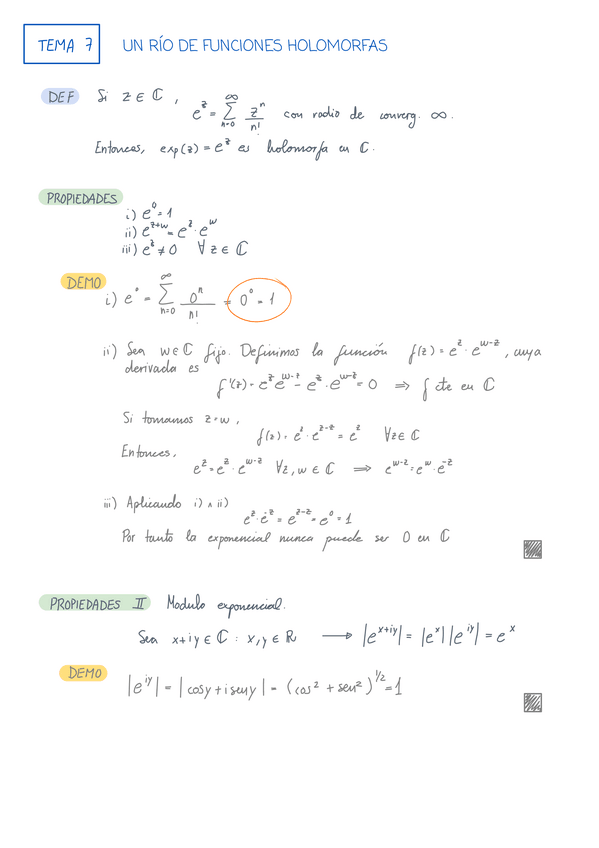 TEMA 7 UN RÍO DE FUNCIONES HOLOMORFAS
DEF Si z ∈ ℂ , e^z = ∑_{n=0}^{∞} z^n / n! con radio de converg. ∞.
Entonces, exp(z) = e^z es holomorfa en ℂ.
PROPIEDADES
i) e^0 = 1
ii) e^{z+w} = e^z · e^w
iii) e^z ≠ 0 ∀ z ∈ ℂ
DEMO
i) e^0 = ∑_{n=0}^{∞} 0^n / n! = 0^0 = 1
ii) Sea w ∈ ℂ fijo. Definimos la función f(z) = e^z · e^{w-z} , cuya
derivada es
f'(z) = e^z e^{w-z} - e^z · e^{w-z} = 0 ⟹ f cte en ℂ
Si tomamos z = w ,
f(z) = e^z · e^{z-z} = e^z ∀z ∈ ℂ
Entonces,
e^z = e^z · e^{w-z} ∀z, w ∈ ℂ ⟹ e^{w-z} = e^w · e^{-z}
iii) Aplicando i) ∧ ii)
e^z · e^{-z} = e^{z-z} = e^0 = 1
Por tanto la exponencial nunca puede ser 0 en ℂ
PROPIEDADES II Modulo exponencial.
Sea x+iy ∈ ℂ : x, y ∈ ℝ ⟶ |e^{x+iy}| = |e^x| |e^{iy}| = e^x
DEMO
|e^{iy}| = | cosy + i seny | = (cos² + sen²)^{1/2} = 1